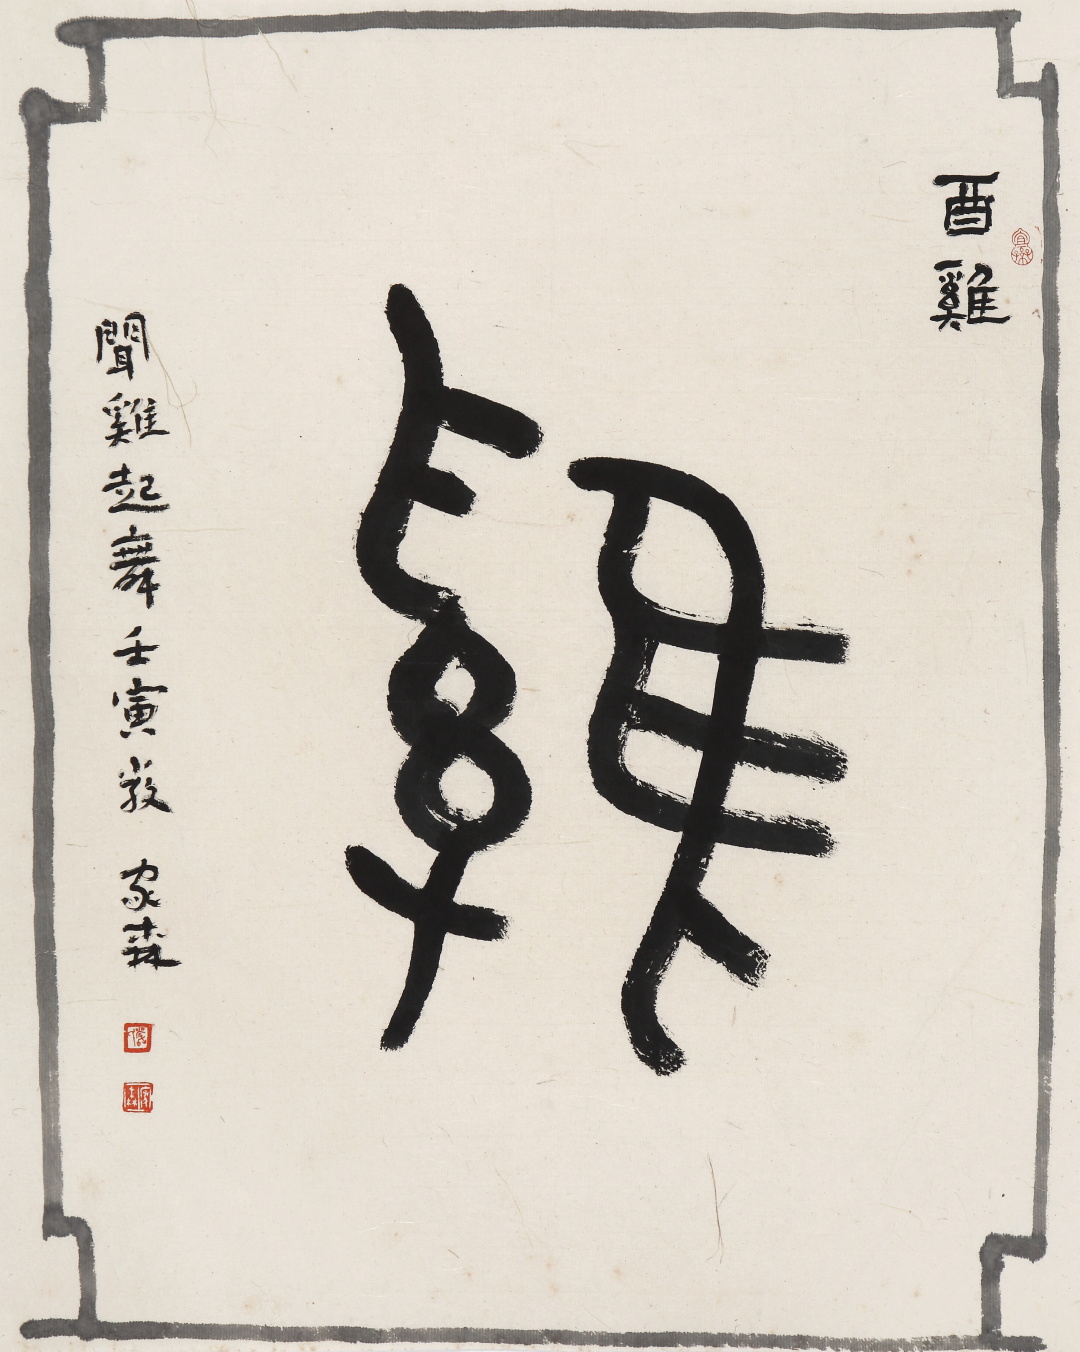 酉雞
雞
聞雞起舞壬寅歲 家森